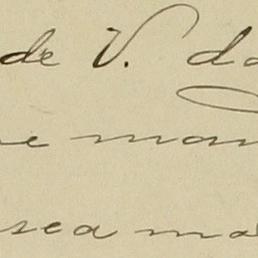 de V. da
e man
sea ma